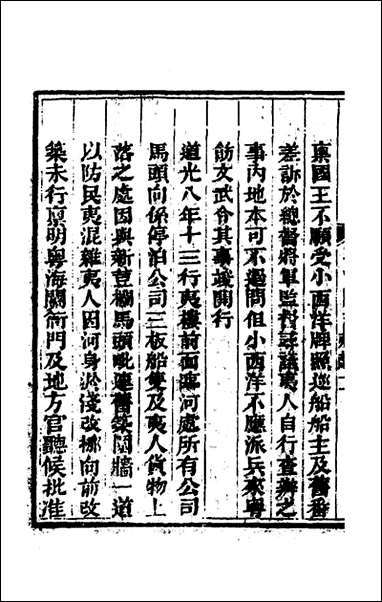 稟國王不願受小西洋牌照遂船船主及舊番
差訴於總督將軍監督尋議夷人自行查辦之
事內地本可不過問但小西洋不應派兵來粵
飭文武令其事竣開行
道光八年十三行夷樓前面臨河處所有公司
馬頭向係停泊公司三板船隻及夷人貨物上
落之處因與新荳欄馬頭毗連舊築闊牆一道
以防民夷混雜夷人因河身淤淺改挪向前改
築未行稟明粵海關衙門及地方官聽候批准